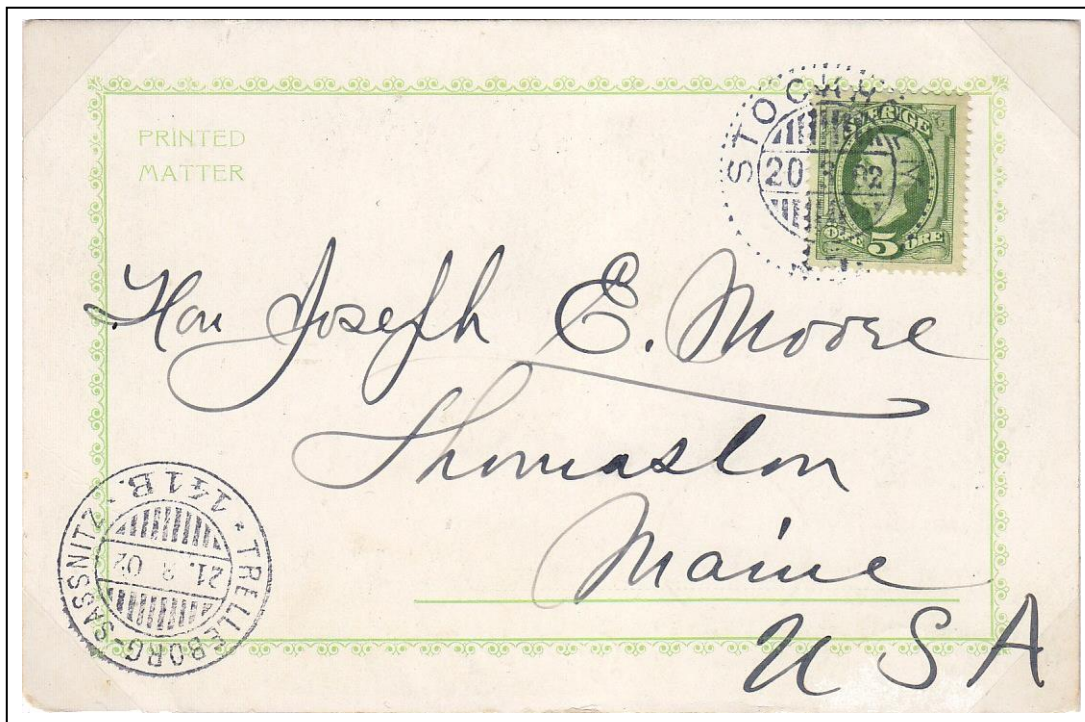 PRINTED
MATTER
STOCKHOLM
20
02
SVERIGE
5
ÖRE
Hon Joseph E. Moore
Thomaston
Maine
USA
TRELLEBORG-SASSNITZ
141 B.
21. 02